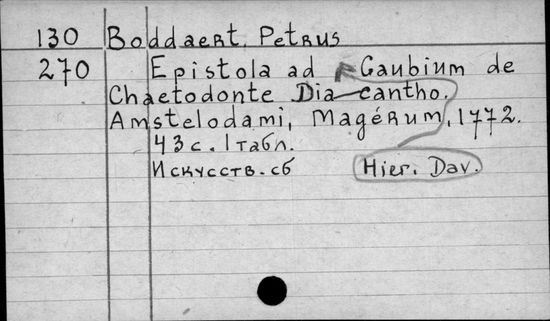 130 Boddaert, Petrus
270 Epistola ad Gaubium de
Chaetodonte Diacantho.
Amstelodami, Magérum, 1772.
43 с. 1 табл.
Искусств. сб Hier. Dav.